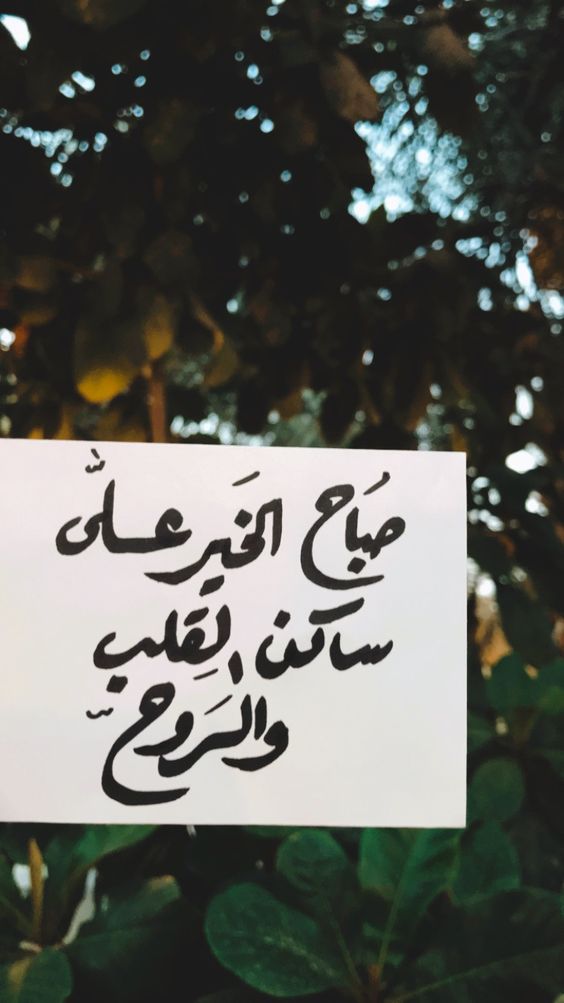 صَباحُ الخَير علىّ
ساكن القَلبِ
والرَوح